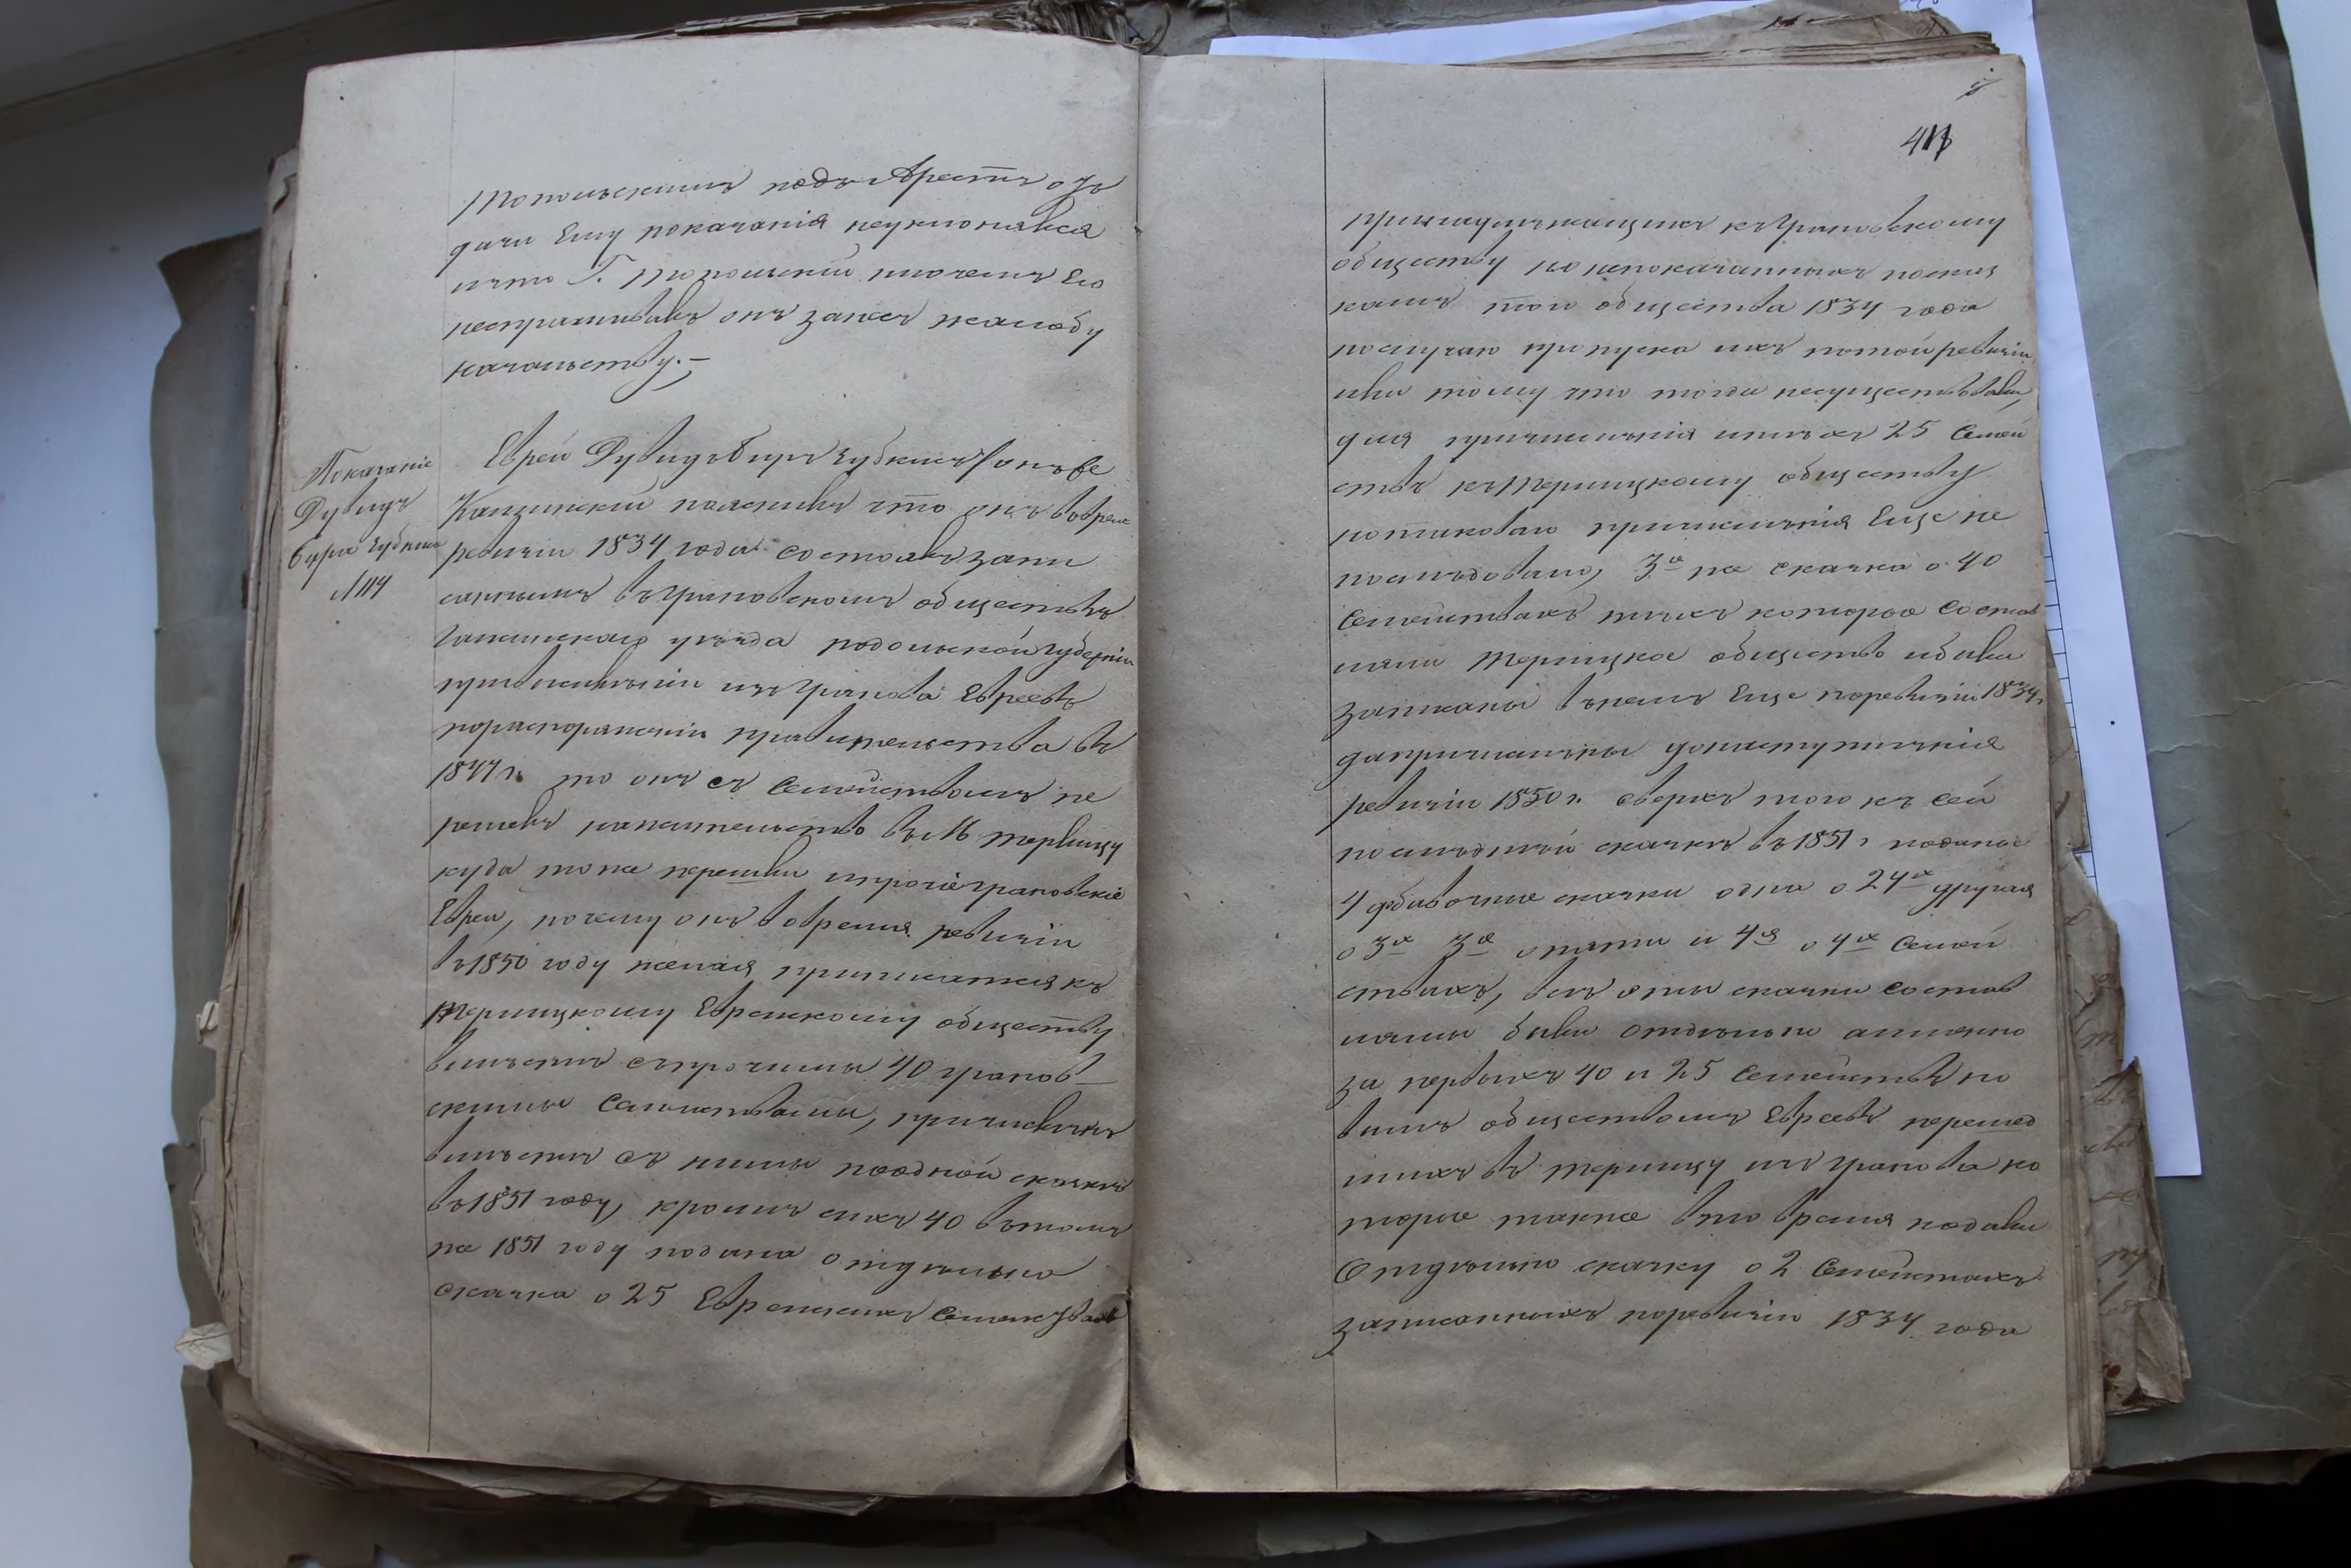 Топольскимъ подъ Арестъ отъ
дачи Ему показанія неуклонялся
что Г. Топольскій ни о чемъ Его
неспрашивалъ онъ занесъ жалобу
начальству.—
Показаніе
Дувидъ
Бера Губкина
Еврей Дувидъ Беръ Губкинъ онъ же
показалъ что онъ во время
ревизіи 1834 года состоялъ запи
саннымъ въ Грановскомъ обществѣ
Гайсинскаго уѣзда подольской губерніи
изъ Гранова Евреевъ
по распоряженію правительства въ
1844 г. то онъ съ Семействомъ пе
решелъ на жительство въ М Терлицу
куда тоже перешли и прочіе грановскіе
Евреи, почему онъ во время ревизіи
въ 1850 году желая приписаться къ
Терлицкому Еврейскому обществу
вмѣстѣ съ прочими 40 гранов—
скими Семействами, причисленъ
вмѣстѣ съ ними по одной сказкѣ
въ 1851 году, кромѣ сихъ 40 въ томъ
же 1851 году подана отдѣльно
сказка о 25 Еврейскихъ Семействахъ
411
принадлежащихъ къ Грановскому
обществу но непоказанныхъ по сказ
камъ того общества 1834 года
по случаю пропуска ихъ по той ревизіи
или потому что тогда несуществовали,
для причисленія и тѣхъ 25 Семей
ствъ къ Терлицкому обществу
но таковаго причисленія Еще не
послѣдовало, 3я же сказка о 40
Семействахъ тѣхъ которые состав
ляли Терлицкое общество и были
записаны въ немъ Еще по ревизіи 1834 г.
до наступленія
ревизіи 1850 г. сверхъ того къ сей
послѣдней сказкѣ въ 1851 г поданы
4 добавочные сказки одна о 24х другая
о 3х 3я о пяти и 4я о 4х Семей
ствахъ, всѣ эти сказки состав
ляемы были отдѣльно а именно
за первыхъ 40 и 25 Семействъ но
вымъ обществомъ Евреевъ перешед
шихъ въ Терлицу изъ Гранова ко
торые также въ то время подали
Отдѣльно сказку о 2 Семействахъ
записанныхъ по ревизіи 1834 года